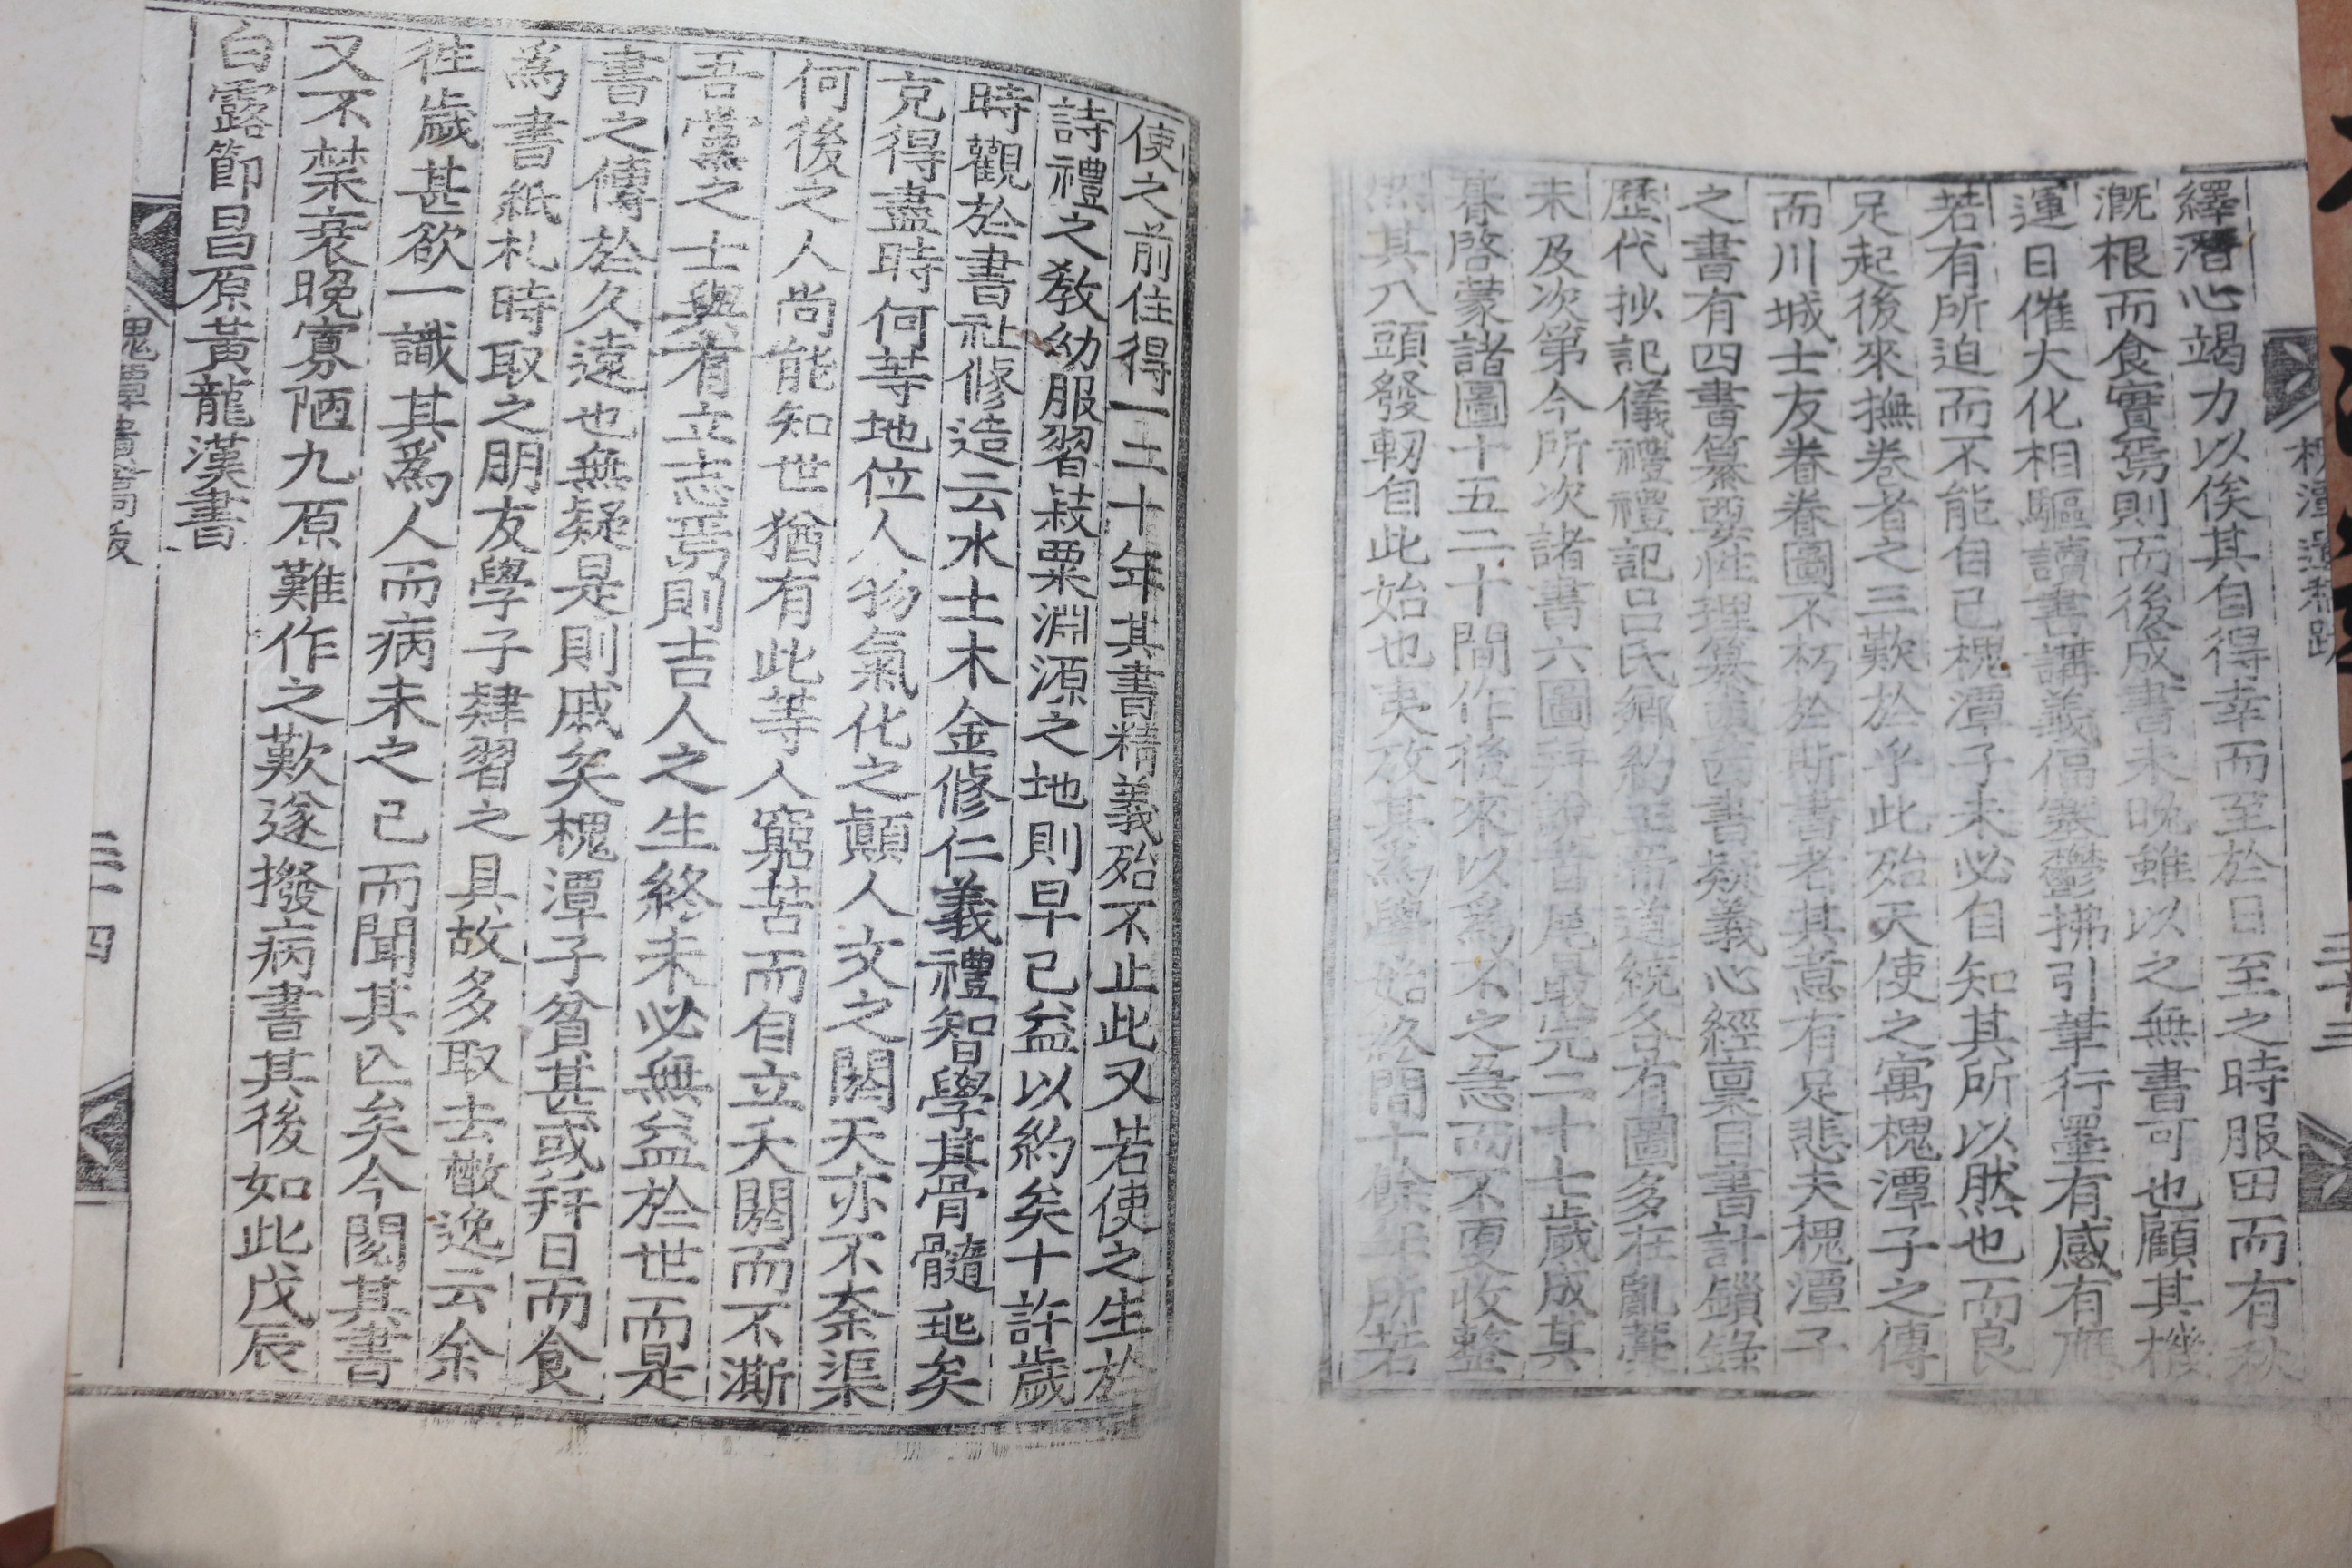 繹潛心竭力以俟其自得幸而至於日至之時服田而有秋
漑根而食實焉則而後成書未晩雖以之無書可也顧其機
運日催大化相驅讀書講義偪寒鬱拂引筆行墨有感有應
若有所迫而不能自已槐潭子未必自知其所以然也而良
足起後來撫卷者之三歎於乎此殆天使之寓槐潭子之傳
而川城士友眷眷圖不朽於斯書者其意有足悲夫槐潭子
之書有四書纂要性理纂要四書疑義心經稟目書計鎖錄
歷代抄記儀禮禮記呂氏鄕約道統各有圖多在亂藁
未及次第今所次諸書六圖拜說首尾最完二十七歲成其
朞啓蒙諸圖十五二十間作後來以爲不之急而不更收整
然其八頭發軔自此始也夷攷其爲學始終間十餘年所若
使之前住得一二十年其書精義殆不止此又若使之生於
詩禮之敎幼服習菽粟淵源之地則早已益以約矣十許歲
時觀於書社修造云水土木金修仁義禮智學其骨髓
矣
克得盡時何等地位人物氣化之顚人文之閼天亦不柰渠
何後之人尚能知世猶有此等人窮苦而自立夭閼而不澌
吾黨之士與有立志焉則吉人之生終未必無益於世而是
書之傳於久遠也無疑是則戚矣槐潭子貧甚或拜日而食
爲書紙札時取之朋友學子肄習之具故多取去散逸云余
徃歲甚欲一識其爲人而病未之已而聞其亾矣今閱其書
又不禁衰晩寡陋九原難作之歎遂撥病書其後如此戊辰
白露節昌原黃龍漢書
槐潭遺稿跋
三十四
槐潭遺稿跋
三十三